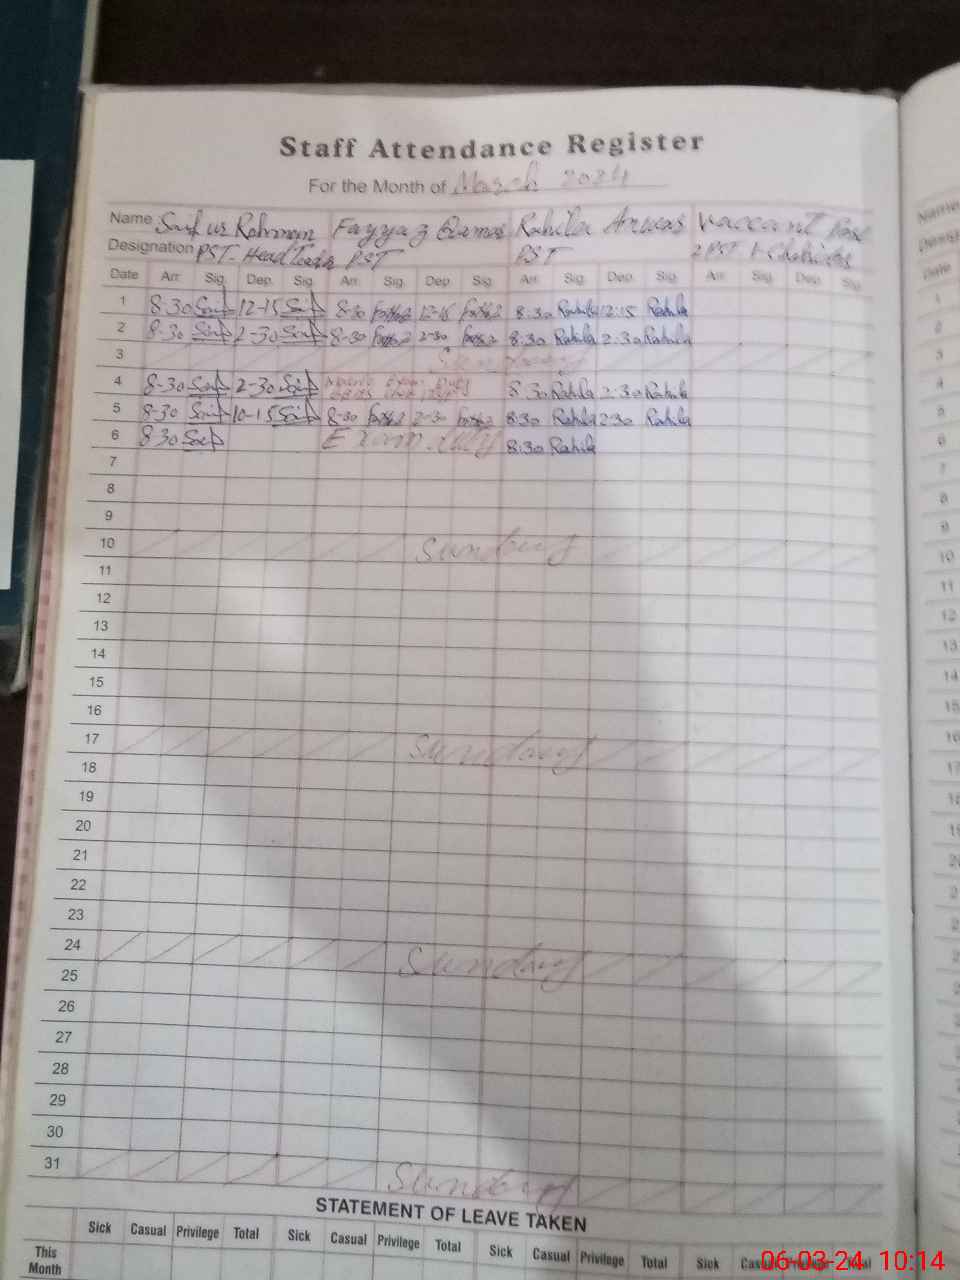 Staff Attendance Register
For the Month of March 2024
Name Saif ur Rahman Fayyaz Qamar Rahila Anwar vaccant Post
Designation PST-Head Teacher PST PST 2 PST 1-
Date Arr. Sig. Dep. Sig. Arr. Sig. Dep. Sig. Arr. Sig. Dep. Sig. Arr. Sig. Dep. Sig.
1 8-30 Saif 12-15 Saif 8-30 12-15 8:30 Rahila 12:15 Rahila
2 8-30 Saif 2-30 Saif 8-30 2-30 8:30 Rahila 2:30 Rahila
3 Sunday
4 8-30 Saif 2-30 Saif Exam Duty 8:30 Rahila 2:30 Rahila
5 8-30 Saif 10-15 Saif 8-30 2-30 8:30 Rahila 2:30 Rahila
6 8:30 Saif Exam. duty 8:30 Rahila
7
8
9
10 sunday
11
12
13
14
15
16
17 sunday
18
19
20
21
22
23
24 sunday
25
26
27
28
29
30
31 Sunday
STATEMENT OF LEAVE TAKEN
Sick Casual Privilege Total Sick Casual Privilege Total Sick Casual Privilege Total Sick
This
Month
06-03-24 10:14
Name
Date
1
2
3
4
5
6
7
8
9
10
11
12
13
14
15
16
17